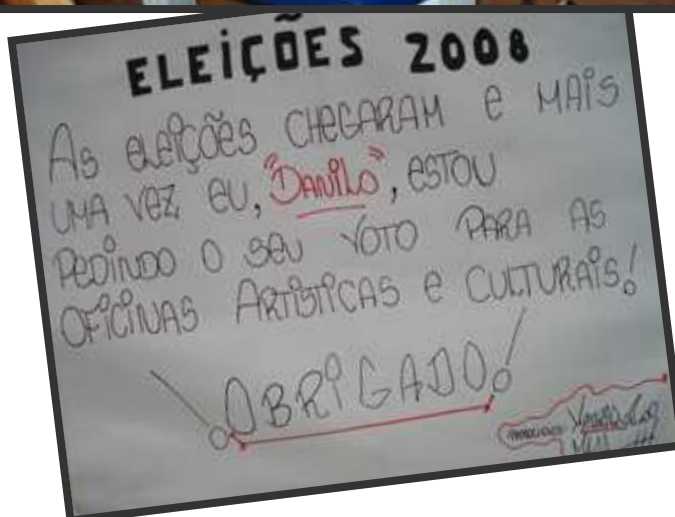 ELEIÇÕES 2008
AS ELEIÇÕES CHEGARAM E MAIS
UMA VEZ, EU, "DANILO", ESTOU
PEDINDO O SEU VOTO PARA AS
OFICINAS ARTÍSTICAS E CULTURAIS!
OBRIGADO!